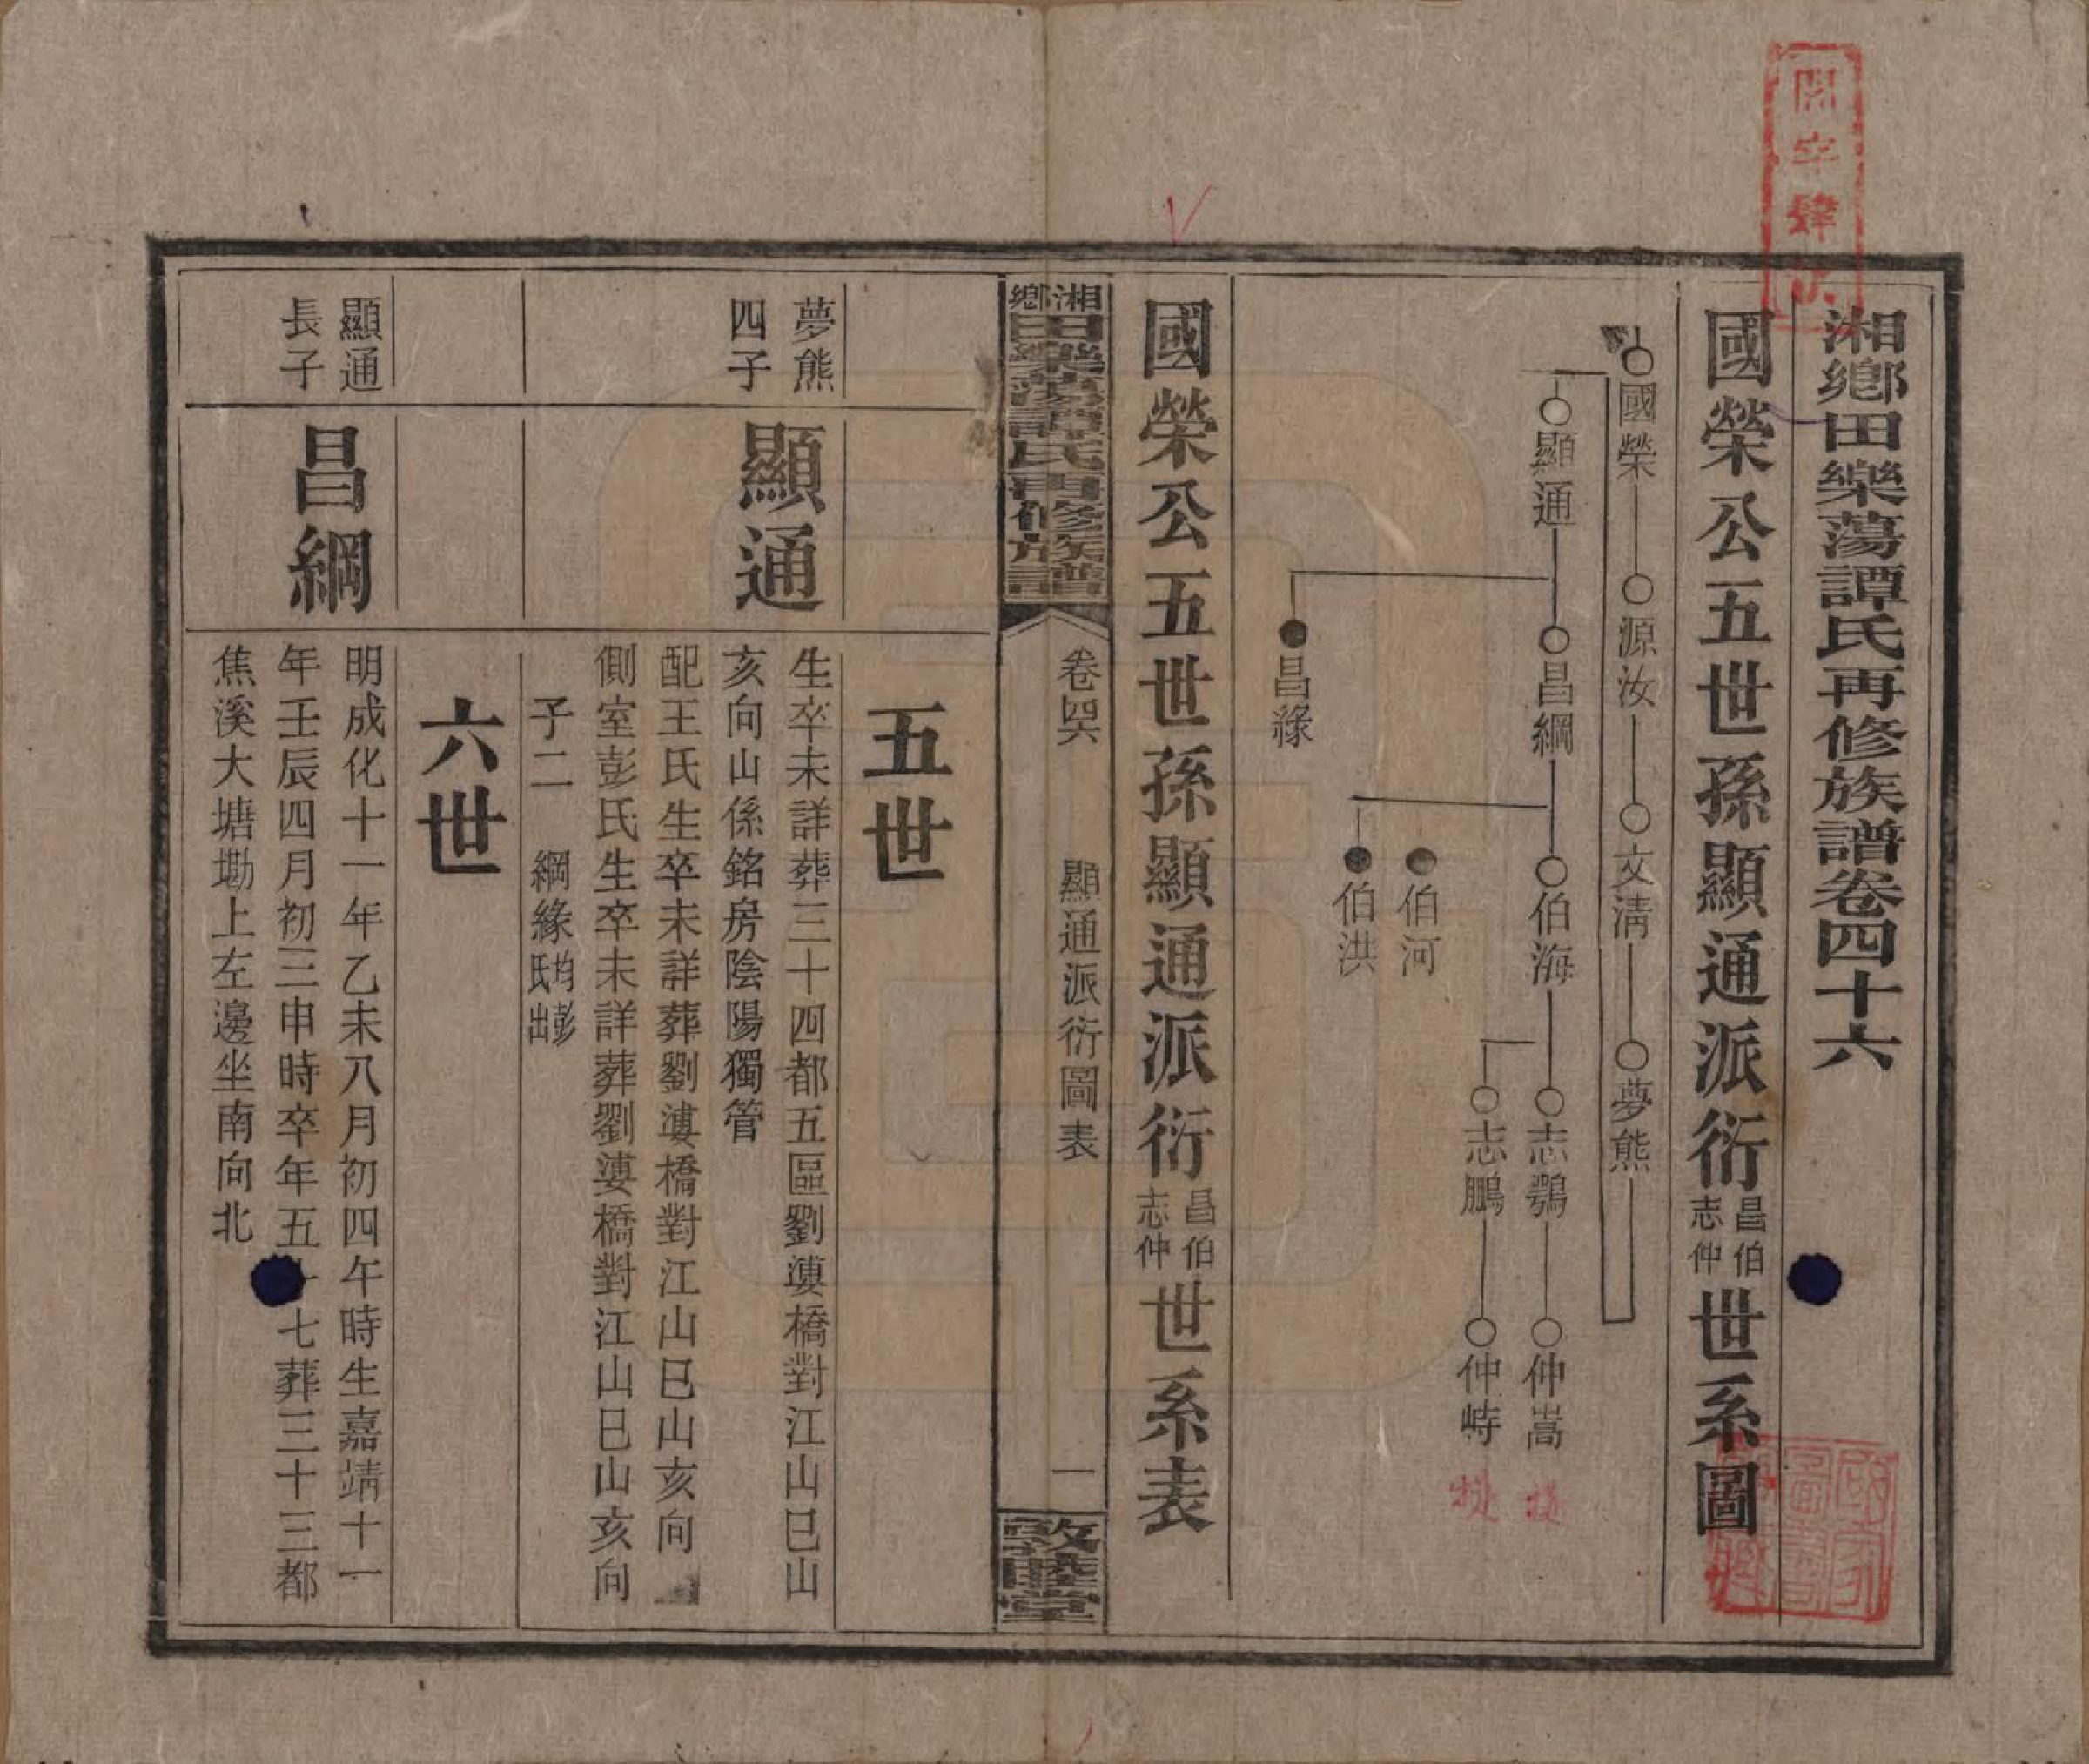 湘鄉田樂蕩譚氏再修族譜卷四十六
國榮公五世孫顯通派衍昌伯志仲世系圖
國榮
源汝
文清
夢熊
顯通
昌綱
伯海
志鶚
仲嵩
志鵬
仲峙
伯河
伯洪
昌緣
國榮公五世孫顯通派衍昌伯志仲世系表
湘鄉田樂蕩譚氏再修族譜
卷四六
顯通派衍圖表
一
敦睦堂
五世
夢熊
四子
顯通
生卒未詳葬三十四都五區劉漊橋對江山巳山
亥向山係銘房陰陽獨管
配王氏生卒未詳葬劉漊橋對江山巳山亥向
側室彭氏生卒未詳葬劉漊橋對江山巳山亥向
子二 綱 緣均彭氏出
六世
顯通
長子
昌綱
明成化十一年乙未八月初四午時生嘉靖十一
年壬辰四月初三申時卒年五十七葬三十三都
焦溪大塘墈上左邊坐南向北